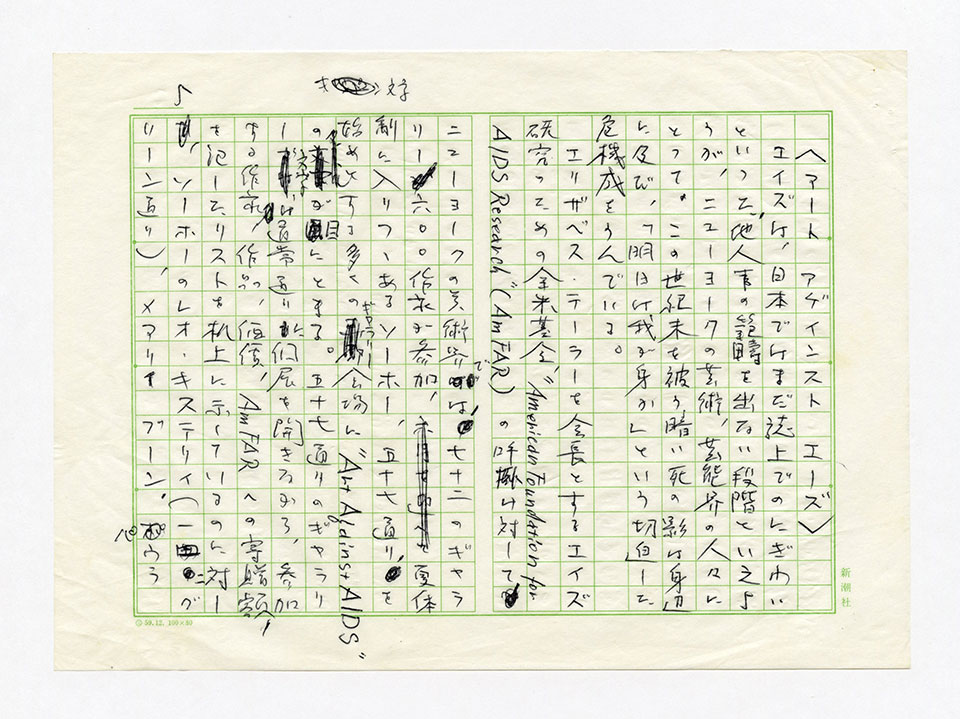 5
文字
〈アート アゲインスト エーズ〉
エイズは、日本ではまだ誌上でのにぎわい
といった、他人事の範疇を出ない段階といえよ
うが、ニューヨークの芸術、芸能界の人々に
とって、この世紀末を被う暗い死の影は身辺
に及び、"明日は我が身か"という切迫した
危機感をうんでいる。
エリザベス・テーラーを会長とするエイズ
研究のための全米基金、"American Foundation for
AIDS Research"(AmFAR)の呼掛け対して
ニューヨークの美術界では、七十二のギャラ
リー六〇〇作家が参加、夏休
制に入りつゝあるソーホー、五十七通り、を
始めとする多くのギャラリー会場に"Art Against AIDS"
の文字が目にとまる。五十七通りのギャラリ
ーは通常通り個展を開きながら、参加
する作家、作品、価値、AmFARへの寄贈額、
を記したリストを机上に示しているのに対し
、ソーホーのレオ・キステリィ(一 グ
リーン通り)、メアリイ ブーン、パウラ
新潮社
59.12. 100×80